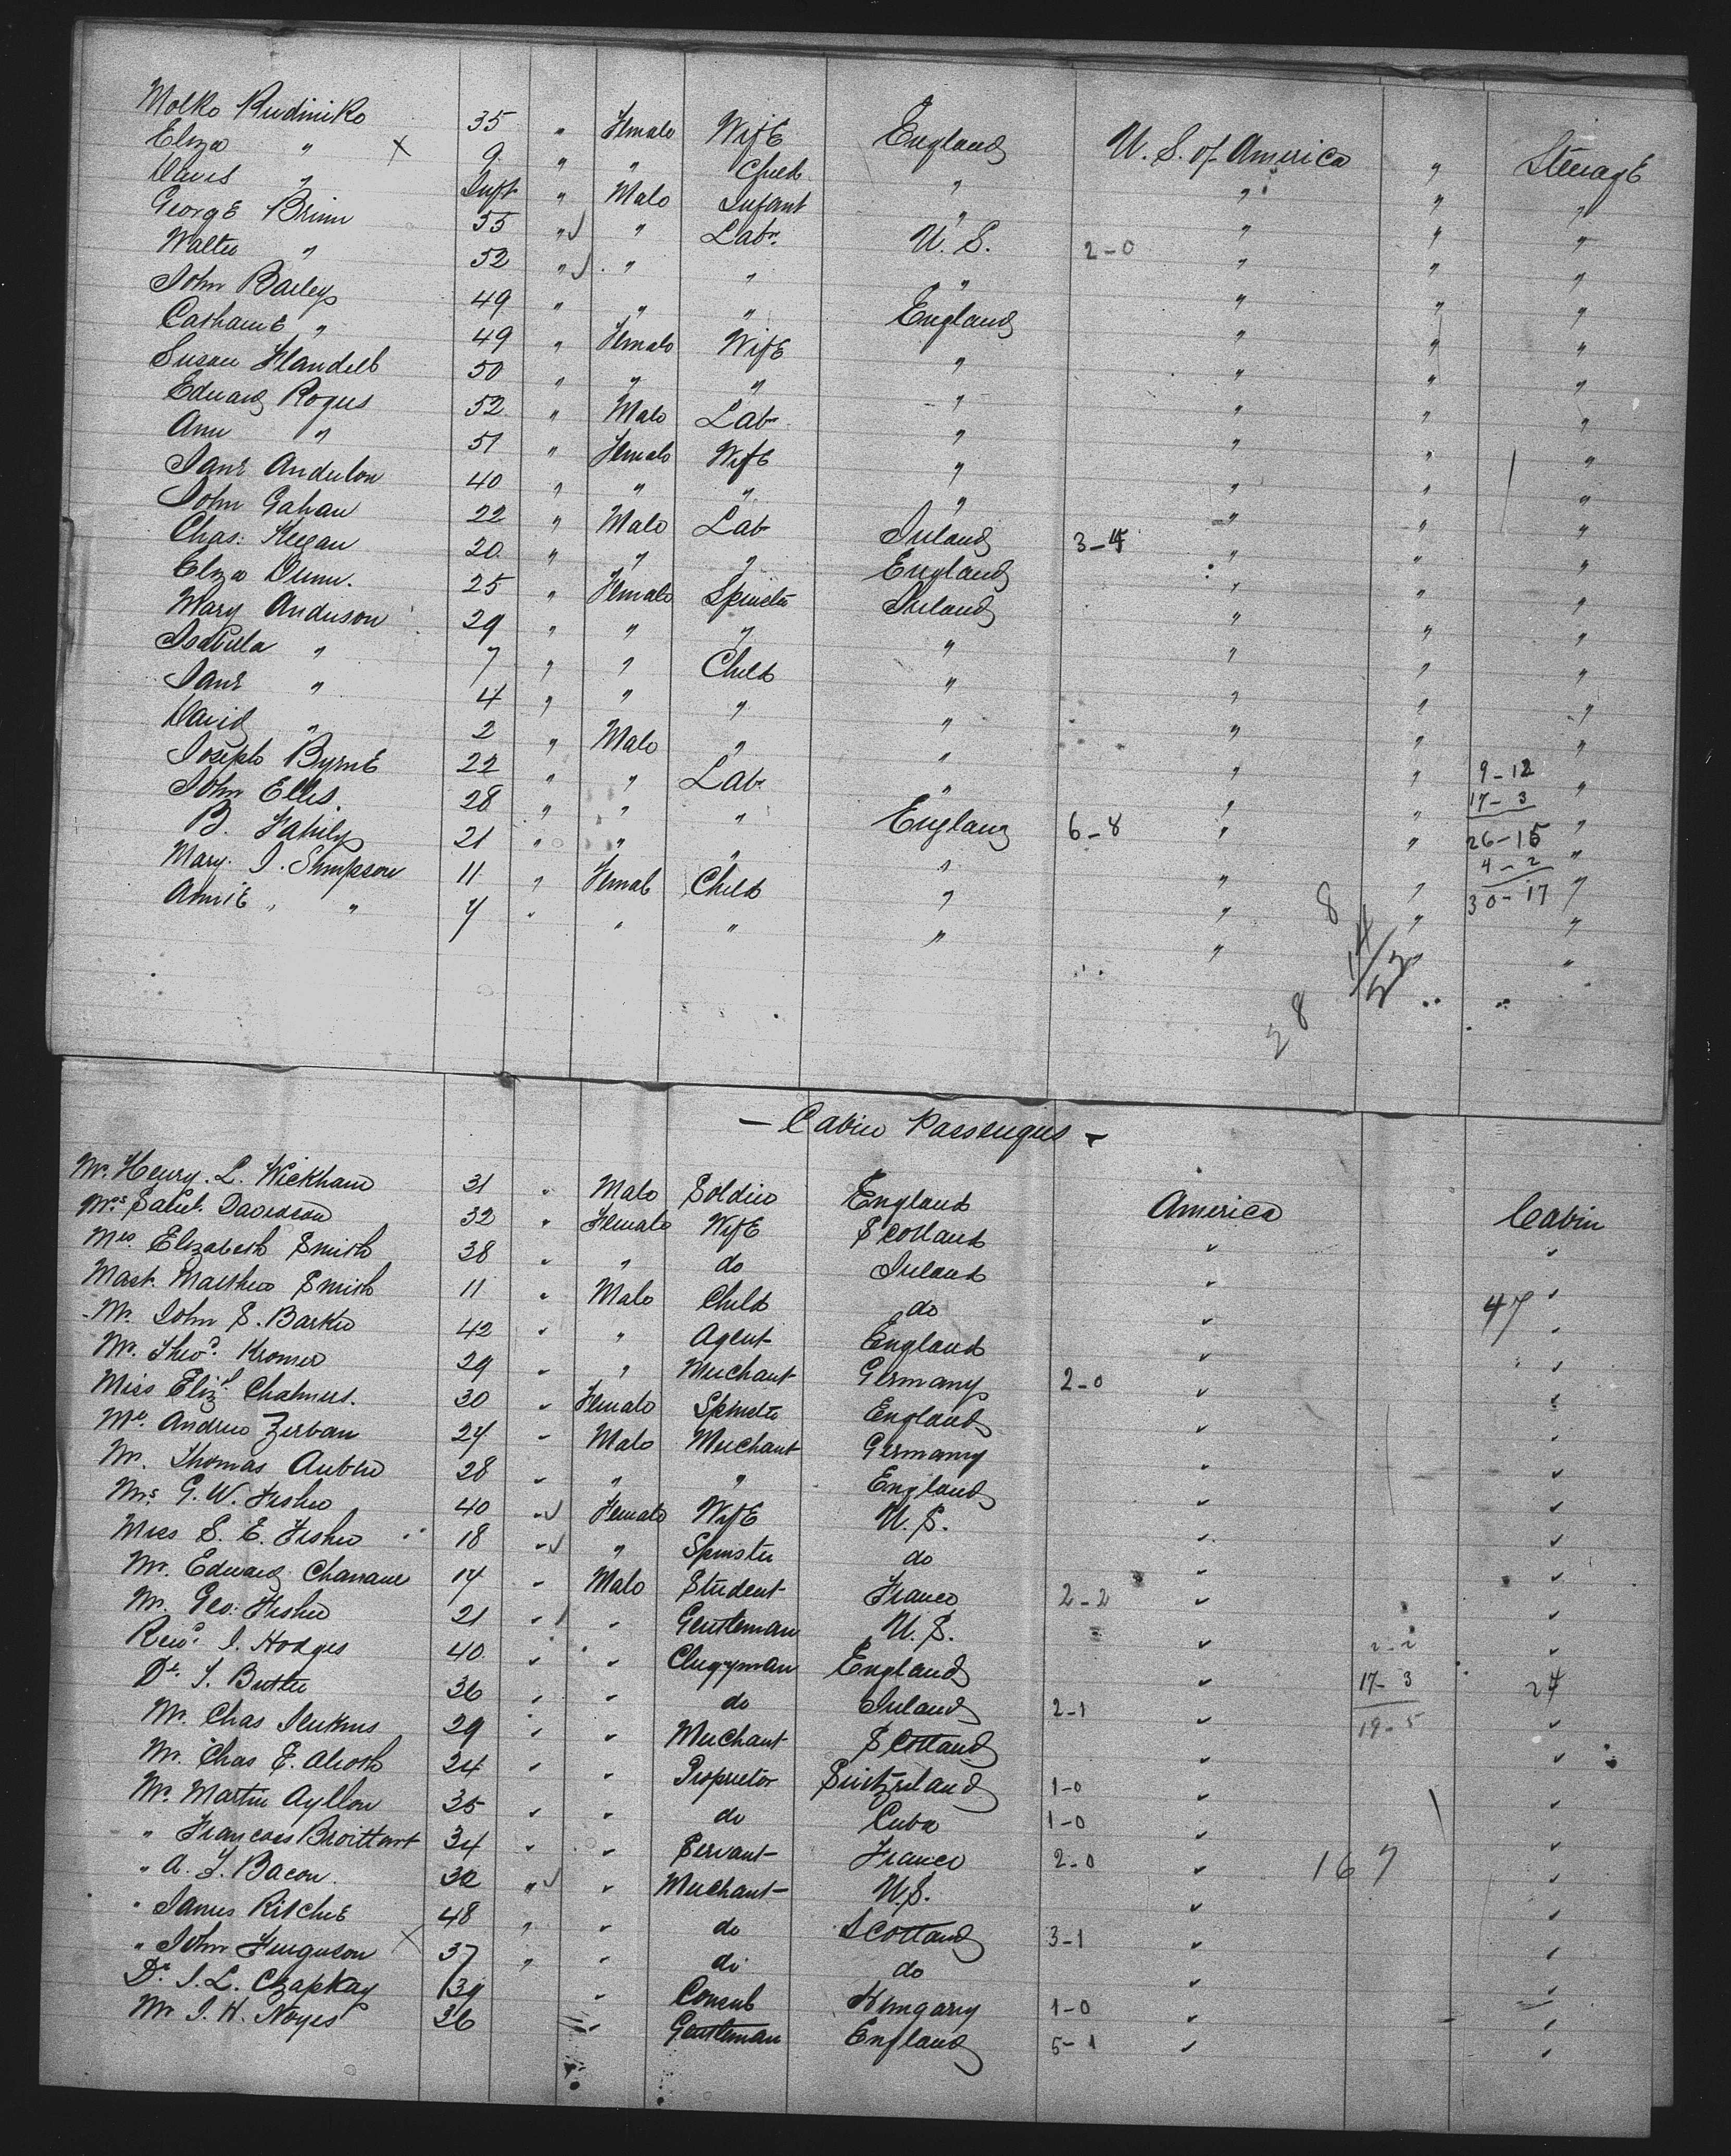 Molko Rudiniko 35 " Female Wife England U. S. of America " Steerage
Eliza " X 9 " " Child " " " "
Davis " Inft " Male Infant " " " "
George Brinn 55 " √ " Labr. U. S. 2-0 " " "
Walter " 52 " √ " " " " " "
John Bailey 49 " " " England " " "
Catharine " 49 " Female Wife " " " "
Susan Handell 50 " " " " " " "
Edward Rogers 52 " Male Labr " " " "
Ann " 51 " Female Wife " " " "
Jane 40 " " " " " " "
John Gahan 22 " Male Lab Ireland 3-4 " " "
Chas: Keegan 20 " " " England " " "
Eliza Dunn. 25 " Female Spinster Ireland " " "
Mary Anderson 29 " " " " " " "
Isabella " 7 " " Child " " " "
Jane " 4 " " " " " " "
David " 2 " Male " " " " "
Joseph Byrne 22 " " Labr " " " 9-12 "
John Ellis. 28 " " " England 6-8 " " 17-3 "
B. 21 " " " " " " 26-15 "
4-2
Mary. J. Simpson 11 " Female Child " " " 30-17 "
Annie " 7 " " " " " 8 " "
14/3
28
- Cabin Passengers -
Mr. Henry. L. Wickham 31 " Male Soldier England America Cabin
Mrs Davidson 32 " Female Wife Scotland ✓ ✓
Mrs Elizabeth Smith 38 " " do Ireland ✓ ✓
Mast. Matthew Smith 11 " Male Child do ✓ 47 ✓
Mr. John S. Barker 42 " " Agent England ✓ ✓
Mr. Theod. Kromer 29 " " Merchant Germany 2-0 ✓ ✓
Miss Elizth Chalmers. 30 " Female Spinster England ✓ ✓
Mr. Andrew Zerban 24 " Male Merchant Germany ✓ ✓
Mr. Thomas 28 " " " England ✓ ✓
Mrs. G. W. Fisher 40 " √ Female Wife U. S. ✓ ✓
Miss S. E. Fisher 18 " √ " Spinster do ✓ ✓
Mr. Edward 14 " Male Student France 2-2 ✓ ✓
Mr. Geo: Fisher 21 " √ " Gentleman U. S. ✓ 2-2 ✓
Revd. J. Hodges 40 " " Clergyman England ✓ 17-3 24
Dr. J. Butler 36 " " do Ireland 2-1 ✓ 19-5 ✓
Mr. Chas Jenkins 29 " " Merchant Scotland ✓ ✓
Mr. Chas E. Alioth 24 " " Proprietor Switzerland 1-0 ✓ ✓
Mr. Martin Ayllon 35 " " do Cuba 1-0 ✓ ✓
" Francois Broittart 34 " " Servant France 2-0 ✓ 167 ✓
" A. J. Bacon. 32 " √ " Merchant U.S. ✓ ✓
" James Ritchie 48 " " do Scotland 3-1 ✓ ✓
" John Ferguson X 37 " " do do ✓ ✓
Dr. J. L. Czapkay 39 " Consul Hungary 1-0 ✓ ✓
Mr J. H. Noyes 36 " Gentleman England 5-1 ✓ ✓